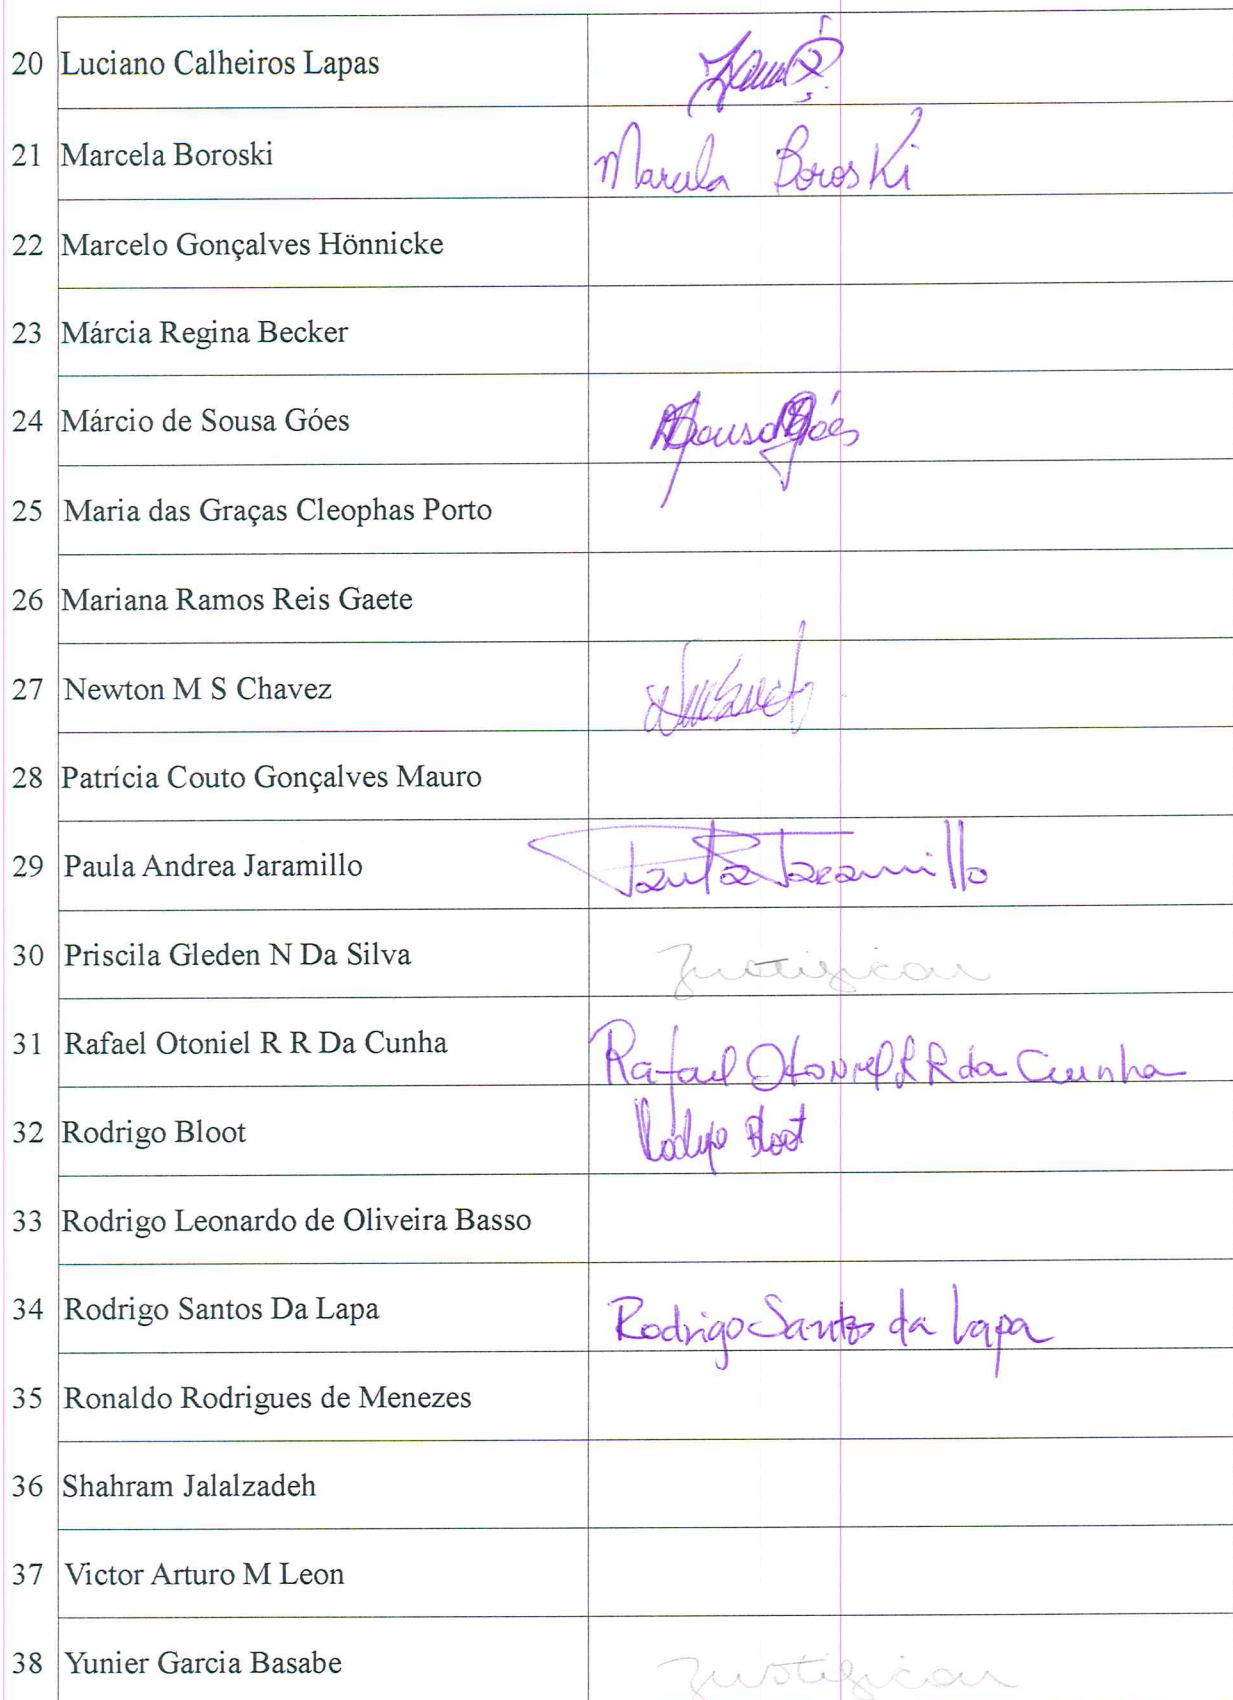 20 Luciano Calheiros Lapas
21 Marcela Boroski Marcela Boroski
22 Marcelo Gonçalves Hönnicke
23 Márcia Regina Becker
24 Márcio de Sousa Góes MSousa Góes
25 Maria das Graças Cleophas Porto
26 Mariana Ramos Reis Gaete
27 Newton M S Chavez
28 Patrícia Couto Gonçalves Mauro
29 Paula Andrea Jaramillo Paula Jaramillo
30 Priscila Gleden N Da Silva Justificou
31 Rafael Otoniel R R Da Cunha Rafael Otoniel R R da Cunha
32 Rodrigo Bloot Rodrigo Bloot
33 Rodrigo Leonardo de Oliveira Basso
34 Rodrigo Santos Da Lapa Rodrigo Santos da Lapa
35 Ronaldo Rodrigues de Menezes
36 Shahram Jalalzadeh
37 Victor Arturo M Leon
38 Yunier Garcia Basabe Justificou